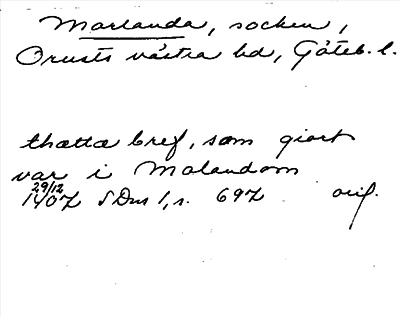 Morlanda, socken,
Orusts västra hd, Göteb. l.
thætta bref, som giort
var i Molandom
29/12
1407 SDns 1, s. 697 orig.